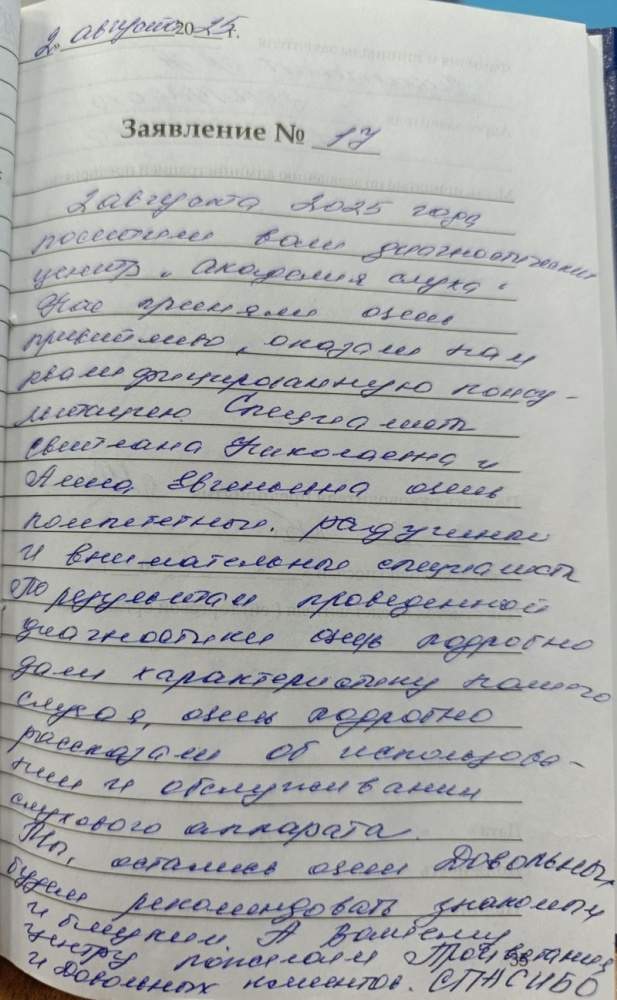 2. августа 2025 г.
Заявление № 17
2 августа 2025 года
посетили ваш диагностический
центр „Академия слуха“
Нас приняли очень
приветливо, оказали нам
квалифицированную консу-
льтацию. Специалисты
Свитлана Николаевна и
Алина Евгеньевна очень
компетентные. радушные
и внимательные специалисты
По результатам проведенной
диагностики очень подробно
дали характеристику нашего
слуха, очень подробно
рассказали об использова-
нии и обслуживании
слухового аппарата.
Мы, остались очень довольны,
будем рекомендовать знакомым
и близким. А Вашему
центру пожелаем Процветания
и довольных клиентов. СПАСИБО
33